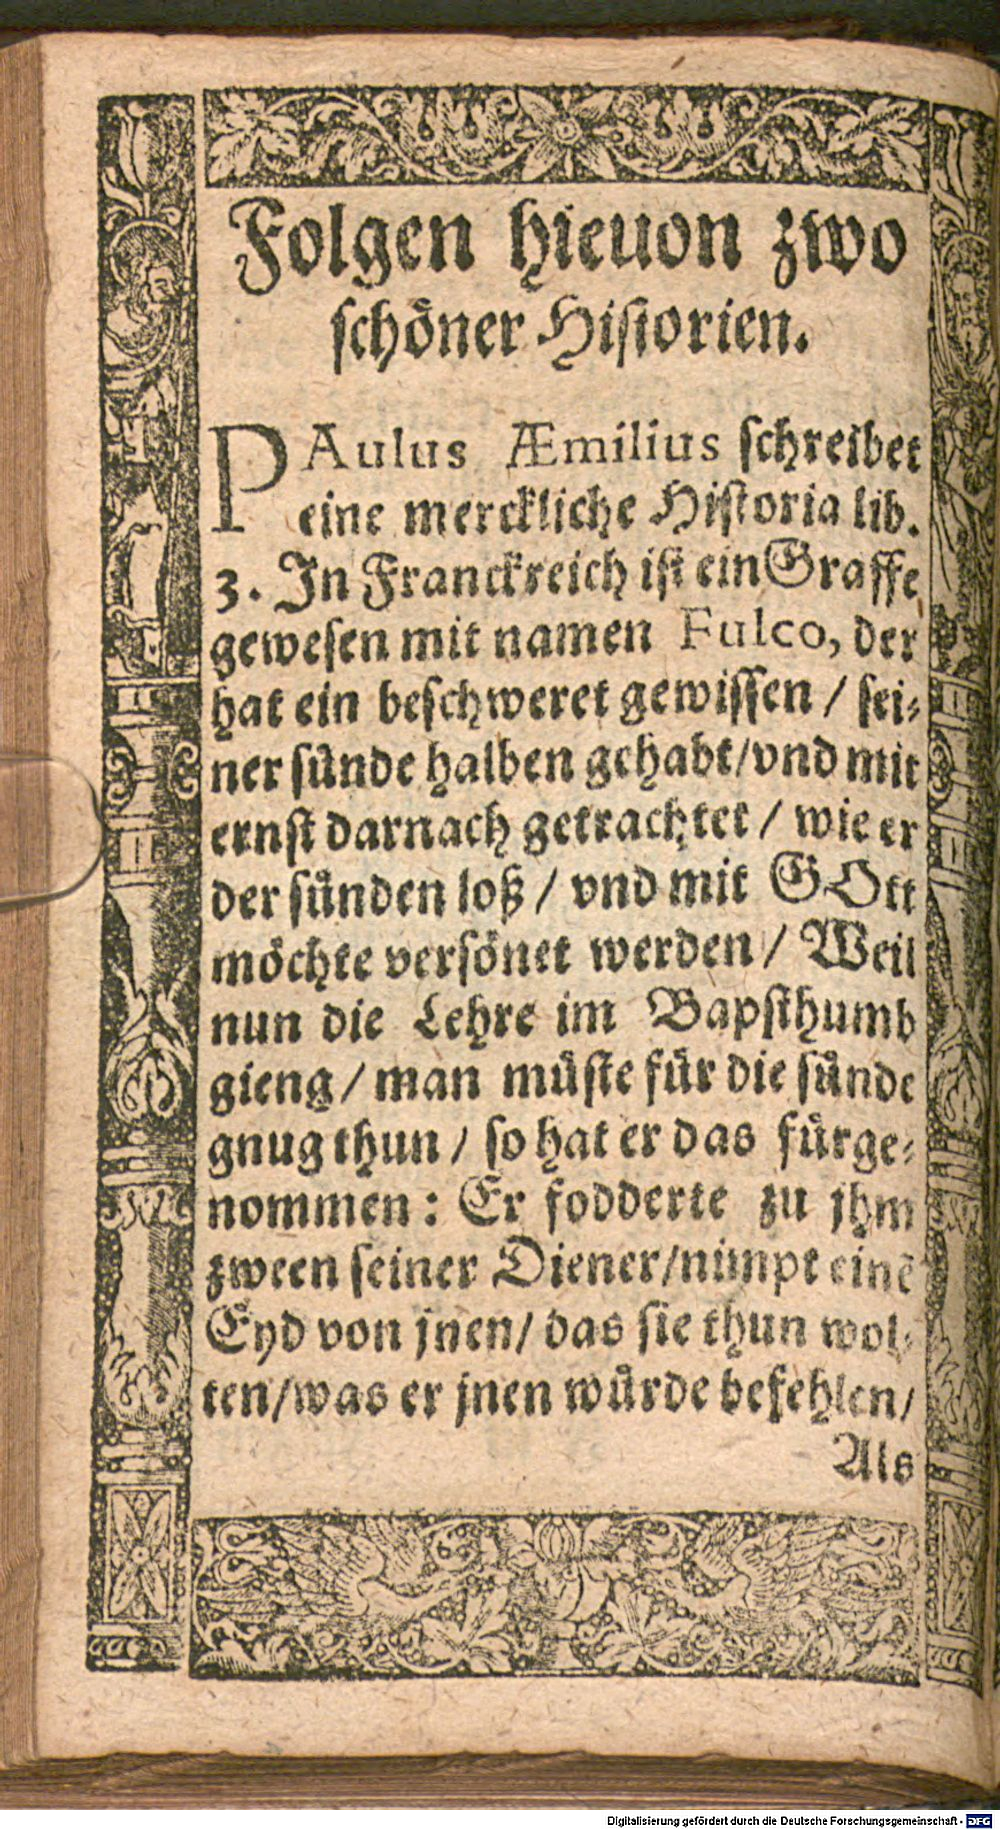 Folgen hieuon zwo
schöner Historien.
PAulus Æmilius schreibet
eine merckliche Historia lib.
3. In Franckreich ist ein Graffe
gewesen mit namen Fulco, der
hat ein beschweret gewissen / sei-
ner sünde halben gehabt / vnd mit
ernst darnach getrachtet / wie er
der sünden loß / vnd mit GOtt
möchte versönet werden / Weil
nun die Lehre im Bapsthumb
gieng / man müste für die sünde
gnug thun / so hat er das fürge-
nommen: Er fodderte zu jhm
zween seiner Diener / nimpt einē
Eyd von jnen / das sie thun wol-
ten / was er jnen würde befehlen /
Als
Digitalisierung gefördert durch die Deutsche Forschungsgemeinschaft - DFG